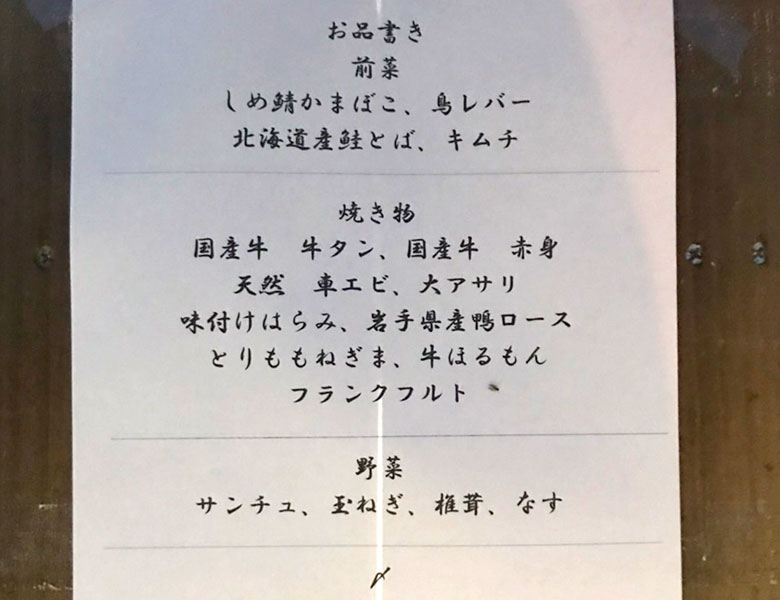 お品書き
前菜
しめ鯖かまぼこ、鳥レバー
北海道産鮭とば、キムチ
焼き物
国産牛　牛タン、国産牛　赤身
天然　車エビ、大アサリ
味付けはらみ、岩手県産鴨ロース
とりももねぎま、牛ほるもん
フランクフルト
野菜
サンチュ、玉ねぎ、椎茸、なす
〆